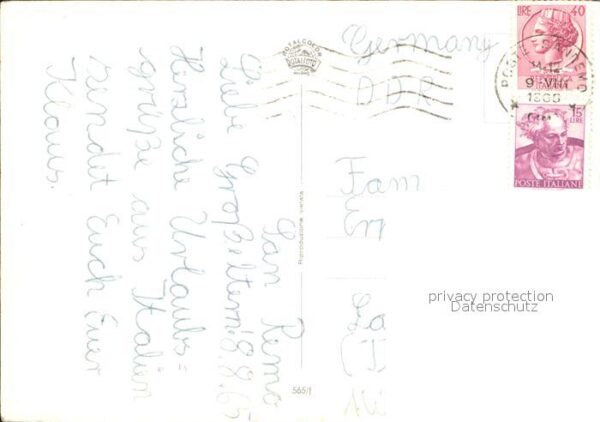 San Remo
8.8.65
Liebe Großeltern!
Herzliche Urlaubs=
grüße aus Italien
sendet Euch Euer
Klaus.
Germany
DDR
Fam
LIRE 40
15
LIRE
POSTE ITALIANE
9-VIII
Riproduzione vietata
565/1
privacy protection
Datenschutz